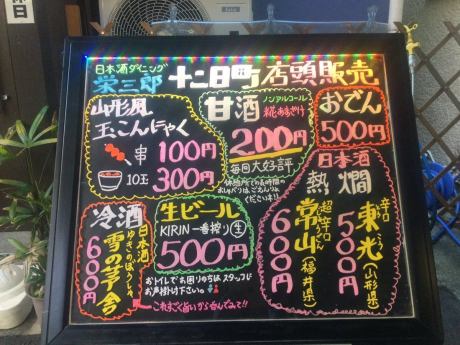 休日
日本酒ダイニング
栄三郎 十二日町 店頭販売
山形風
玉こんにゃく
串 100円
10玉 300円
甘酒
ノンアルコール
糀あまざけ
200円
毎回大好評
おでん
500円
日本酒
熱燗
辛口
東光(山形県)
とうこう
500円
超辛口
常山(福井県)
600円
冷酒
日本酒
雪の茅舎
ゆきのぼうしゃ
600円
生ビール
KIRIN 一番搾り 生
500円
おトイレでお困りの方は スタッフに
お声掛け下さい。
これまじで旨いから呑んでみて!!